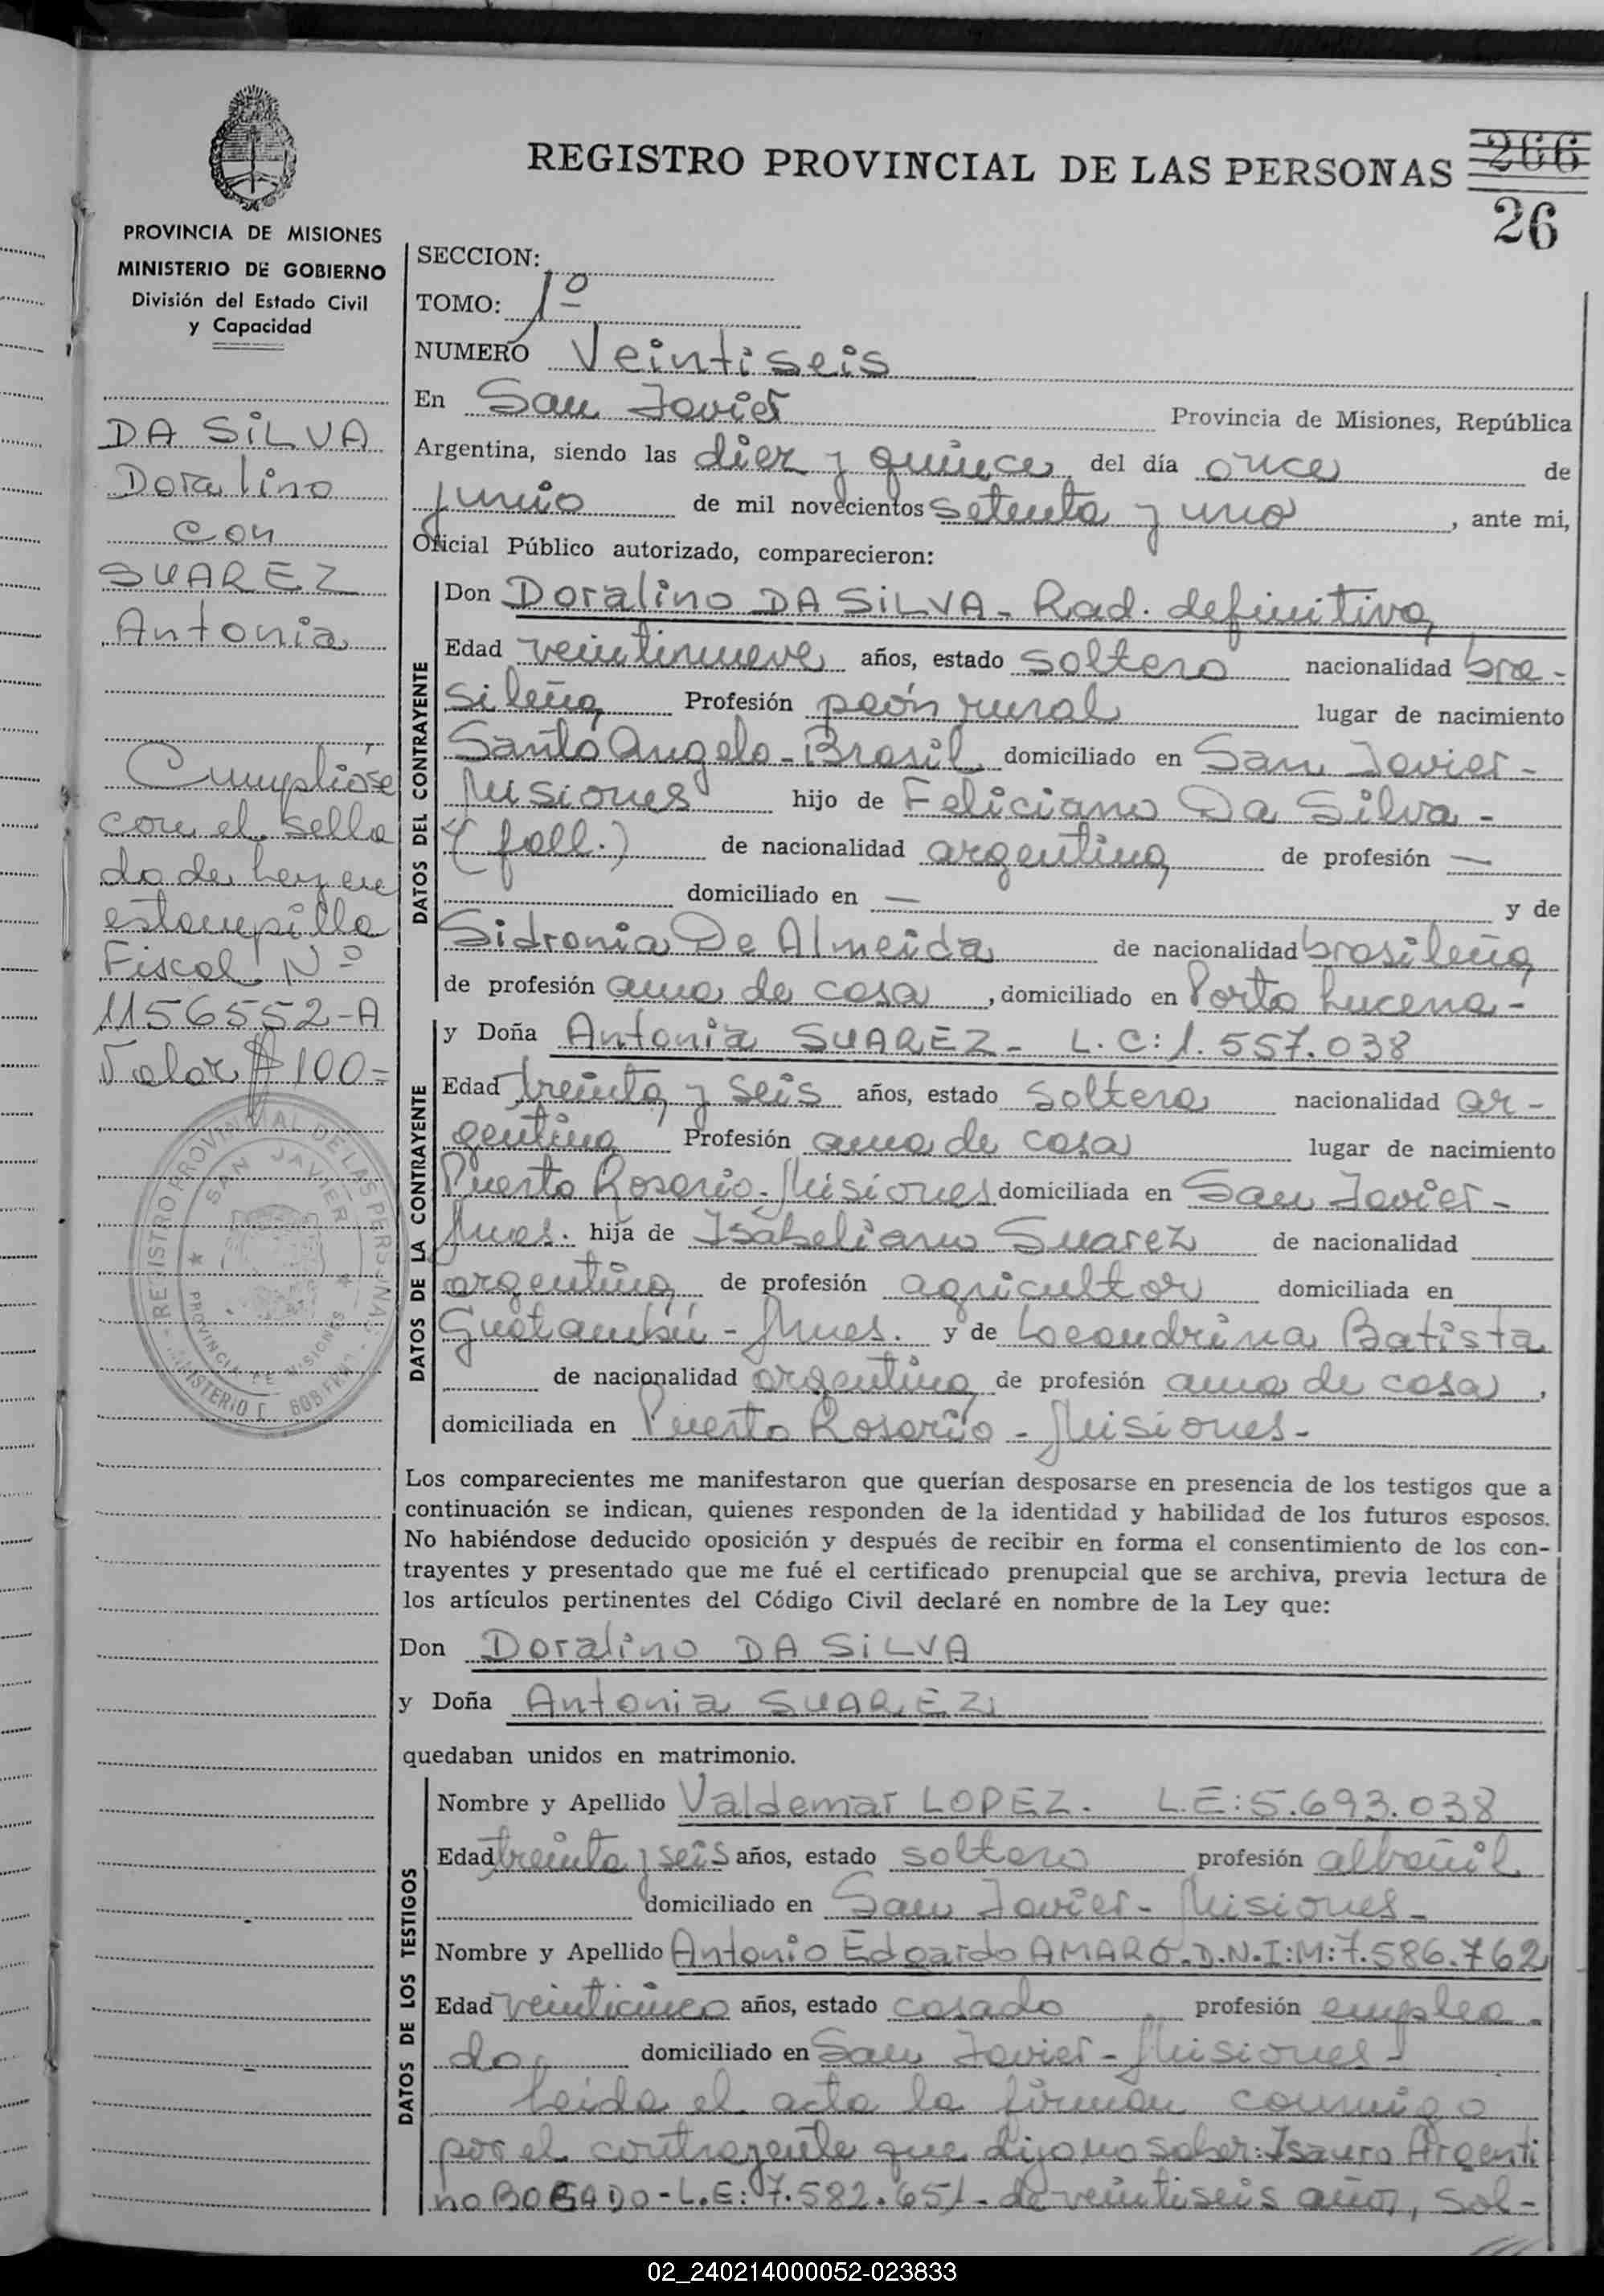 REGISTRO PROVINCIAL DE LAS PERSONAS 266
26
PROVINCIA DE MISIONES
MINISTERIO DE GOBIERNO
División del Estado Civil
y Capacidad
DA SILVA
Doralino
con
SUAREZ
Antonia
Cumplióse
con el sella
do de ley en
estampilla
Fiscal Nº
1156552-A
Valor $ 100=
REGISTRO PROVINCIAL DE LAS PERSONAS
SAN JAVIER
PROVINCIA DE MISIONES
MINISTERIO DE GOBIERNO
SECCION:
TOMO: 1º
NUMERO Veintiseis
En San Javier Provincia de Misiones, República
Argentina, siendo las diez y quince del día once de
junio de mil novecientos setenta y uno, ante mi,
Oficial Público autorizado, comparecieron:
DATOS DEL CONTRAYENTE
Don Doralino DA SILVA - Rad. definitiva
Edad veintinueve años, estado soltero nacionalidad bra-
sileña Profesión peón rural lugar de nacimiento
Santo Angelo - Brasil domiciliado en San Javier -
Misiones hijo de Feliciano Da Silva -
(fall.) de nacionalidad argentina de profesión —
domiciliado en — y de
Sidronia De Almeida de nacionalidad brasileña
de profesión ama de casa, domiciliado en Porto Lucena -
DATOS DE LA CONTRAYENTE
y Doña Antonia SUAREZ - L.C: 1.557.038
Edad treinta y seis años, estado soltera nacionalidad ar-
gentina Profesión ama de casa lugar de nacimiento
Puerto Rosario - Misiones domiciliada en San Javier -
Mnes. hija de Isabeliano Suarez de nacionalidad
argentina de profesión agricultor domiciliada en
Guatambú - Mnes. y de Locandrina Batista
de nacionalidad argentina de profesión ama de casa,
domiciliada en Puerto Rosario - Misiones -
Los comparecientes me manifestaron que querían desposarse en presencia de los testigos que a
continuación se indican, quienes responden de la identidad y habilidad de los futuros esposos.
No habiéndose deducido oposición y después de recibir en forma el consentimiento de los con-
trayentes y presentado que me fué el certificado prenupcial que se archiva, previa lectura de
los artículos pertinentes del Código Civil declaré en nombre de la Ley que:
Don Doralino DA SILVA
y Doña Antonia SUAREZ
quedaban unidos en matrimonio.
DATOS DE LOS TESTIGOS
Nombre y Apellido Valdemar LOPEZ. L.E: 5.693.038
Edad treinta y seis años, estado soltero profesión albañil
domiciliado en San Javier - Misiones -
Nombre y Apellido Antonio Edgardo AMARO. D.N.I: M: 7.586.762
Edad veinticinco años, estado casado profesión emplea-
do domiciliado en San Javier - Misiones -
Leida el acta la firman conmigo
por el contrayente que dijo no saber: Isauro Argenti
no BOGADO - L.E: 7.582.651 - de veintiseis años, sol-
02_240214000052-023833